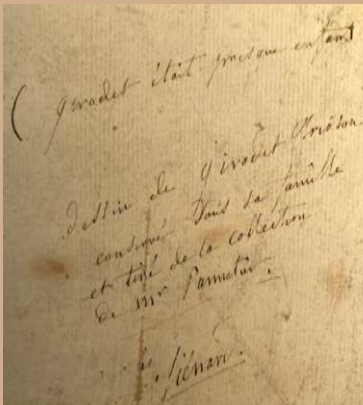 ( girodet était presque enfant
dessin de girodet Trioson
conservé dans sa famille
et tiré de la collection
de mr Pannetier.
Liénard.